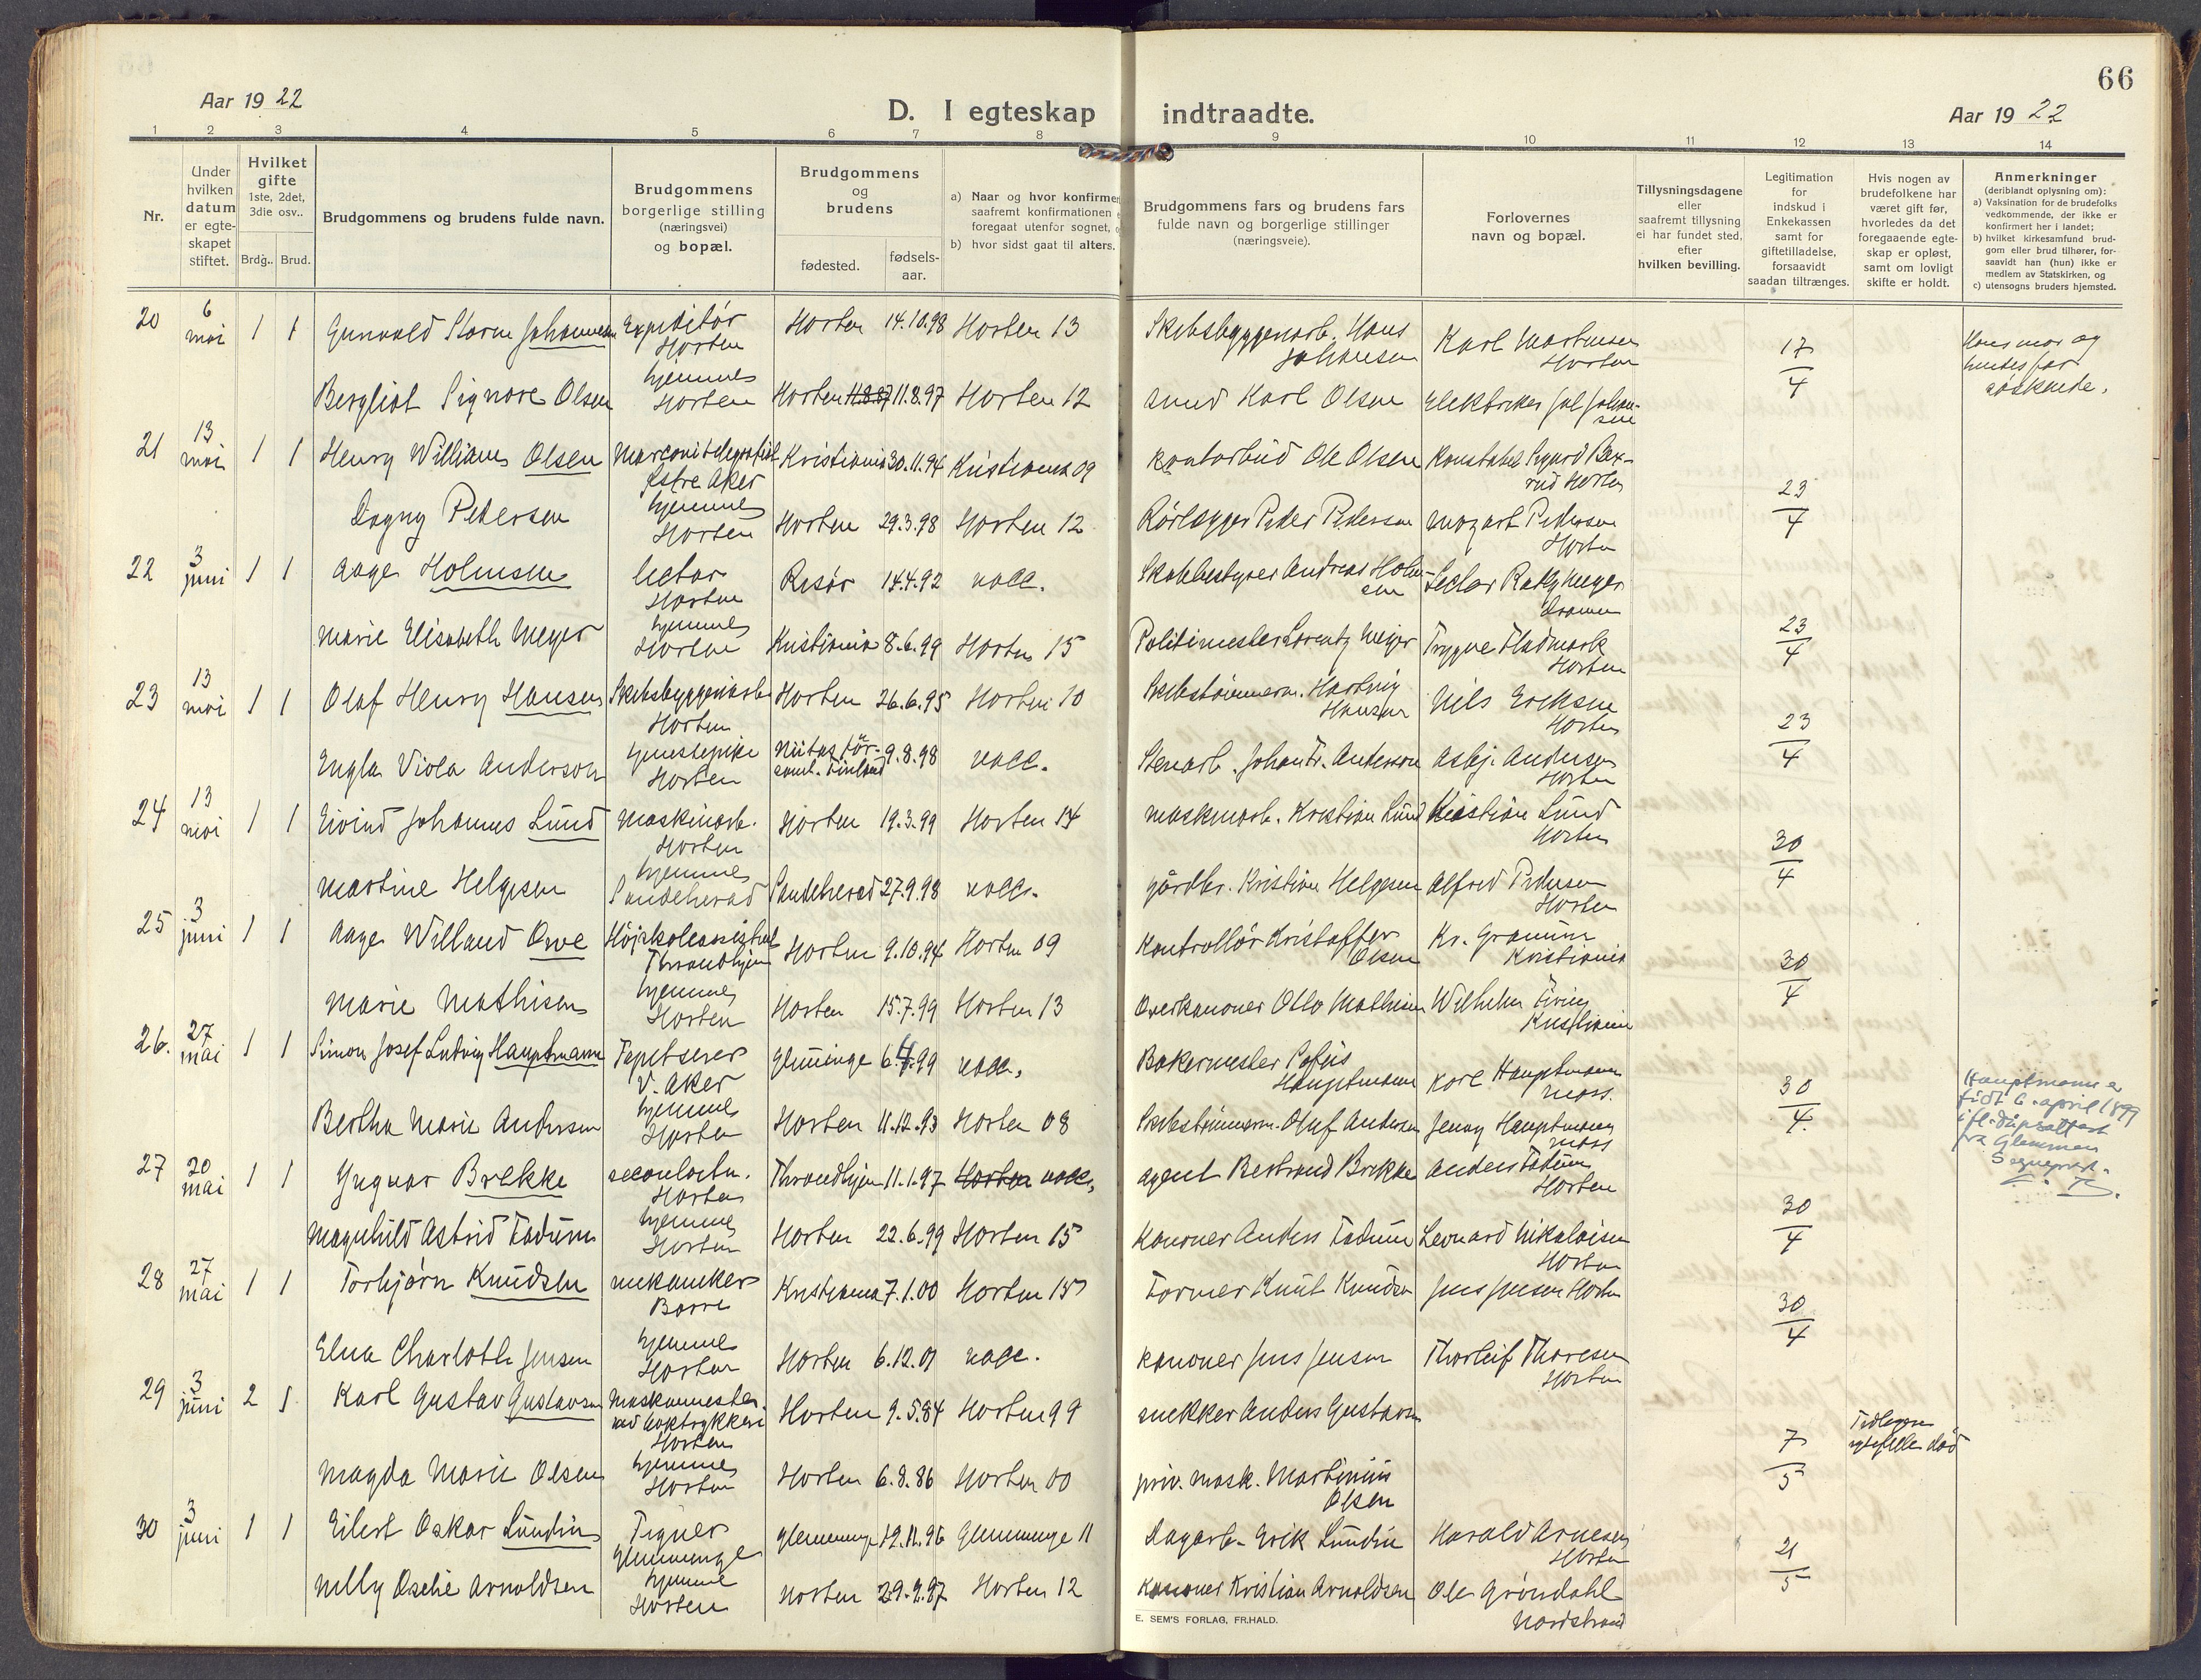 66
Aar 19 22
D. I egteskap indtraadte.
Aar 19 22
1 2 3 4 5 6 7 8 9 10 11 12 13 14
Nr.
Under hvilken datum er egte-skapet stiftet.
Hvilket gifte 1ste, 2det, 3die osv..
Brdg.. Brud.
Brudgommens og brudens fulde navn.
Brudgommens borgerlige stilling (næringsvei) og bopæl.
Brudgommens og brudens
fødested.
fødsels-aar.
a) Naar og hvor konfirme
saafremt konfirmationen
foregaat utenfor sognet,
b) hvor sidst gaat til alters.
Brudgommens fars og brudens fars
fulde navn og borgerlige stillinger
(næringsveie).
Forlovernes
navn og bopæl.
Tillysningsdagene
eller
saafremt tillysning
ei har fundet sted,
efter
hvilken bevilling.
Legitimation
for
indskud i
Enkekassen
samt for
giftetilladelse,
forsaavidt
saadan tiltrænges.
Hvis nogen av
brudefolkene har
været gift før,
hvorledes da det
foregaaende egte-
skap er opløst,
samt om lovligt
skifte er holdt.
Anmerkninger
(deriblandt oplysning om):
a) Vaksination for de brudefolks
vedkommende, der ikke er
konfirmert her i landet;
b) hvilket kirkesamfund brud-
gom eller brud tilhører, for-
saavidt han (hun) ikke er
medlem av Statskirken, og
c) utensogns bruders hjemsted.
20 6 mai 1 1 Storm Johannesen Expeditør Horten Horten 14.10.98 Horten 13 Hans Johansen Karl Martinsen Horten 17/4 Hans mor og hendes far søskende.
Bergliot Signore Olsen hjemme Horten Horten 11.8.97 Horten 12 smed Karl Olsen Elektriker
21 13 mai 1 1 Henry William Olsen Marconitelegrafist Østre Aker Kristiania 30.11.94 Kristiania 09 kontorbud Ole Olsen Konstabel Sigurd Horten 23/4
Dagny Pedersen hjemme Horten Horten 29.3.98 Horten 12 Rørlægger Peder Pedersen Mozart Pedersen Horten
22 3 juni 1 1 Aage Holmsen lector Horten Risør 14.4.92 vacc. Skolebestyrer Andreas Holmsen Lector Meyer 23/4
Marie Elisabeth Meyer hjemme Horten Kristiania 8.6.99 Horten 15 Politimester Lorentz Meyer Trygve Fladmark Horten
23 13 mai 1 1 Olaf Henry Hansen Skibsbyggeriarb. Horten Horten 26.6.95 Horten 10 Skibstømmerm. Hartvig Hansen Nils Eriksen Horten 23/4
Engla Viola Anderson tjenestepike Horten Finland 9.8.98 vacc. Johan Fr. Anderson Asbj. Andersen Horten
24 13 mai 1 1 Eivind Johannes Lund maskinarb. Horten Horten 19.3.99 Horten 14 maskinarb. Kristian Lund Kristian Lund Horten 30/4
Martine Helgesen hjemme Sandeherad Sandeherad 27.9.98 vacc. gårdbr. Kristian Helgesen Alfred Pedersen Horten
25 3 juni 1 1 Aage Willand Owe Throndhjem Horten 9.10.94 Horten 09 Kontrollør Kristoffer Olsen Kr. Gramm Kristiania 30/4
Marie Mathisen hjemme Horten Horten 15.7.99 Horten 13 Overkanoner Otto Mathisen Wilhelm Kristiania
26. 27 mai 1 1 Simon Josef Ludvig Hauptmann Tapetserer V. Aker Glemminge 6.4.99 vacc. Bakermester Hauptmann Karl Hauptmann Moss. 30/4. Hauptmann er født 6. april 1899 fra Glemmen Sogneprest.
Bertha Marie Andersen hjemme Horten Horten 11.12.93 Horten 08 Skibstømmerm. Oluf Andersen Jenny Hauptmann Moss
27 20 mai 1 1 Yngvar Brekke Horten Throndhjem 11.1.97 Horten vacc. agent Bertrand Brekke Anders Tadum Horten 30/4
Magnhild Astrid Tadum hjemme Horten Horten 22.6.99 Horten 15 Kanoner Anders Tadum Leonard Nikolaisen Horten
28 27 mai 1 1 Torbjørn Knudsen mekaniker Borre Kristiania 7.1.00 Horten 15 Former Knut Knudsen Jens Jensen Horten 30/4
Elna Charlotte Jensen hjemme Horten Horten 6.12.01 vacc. kanoner Jens Jensen Thorleif Thoresen Horten
29 3 juni 2 1 Karl Gustav Gustavsen Maskinmester ved Horten Horten 9.5.84 Horten 99 snekker Anders Gustavsen 7/5 død
Magda Marie Olsen hjemme Horten Horten 6.8.86 Horten 00 priv. mask. Martinius Olsen
30 3 juni 1 1 Eilert Oskar Lundin Glemminge Glemminge 19.11.96 Glemminge 11 Dagarb. Erik Lundin Harald Arnesen Horten 21/5
Nelly Arnoldsen hjemme Horten Horten 29.2.97 Horten 12 Kanoner Kristian Arnoldsen Ole Grøndahl Nordstrand
E. SEM'S FORLAG, FR.HALD.